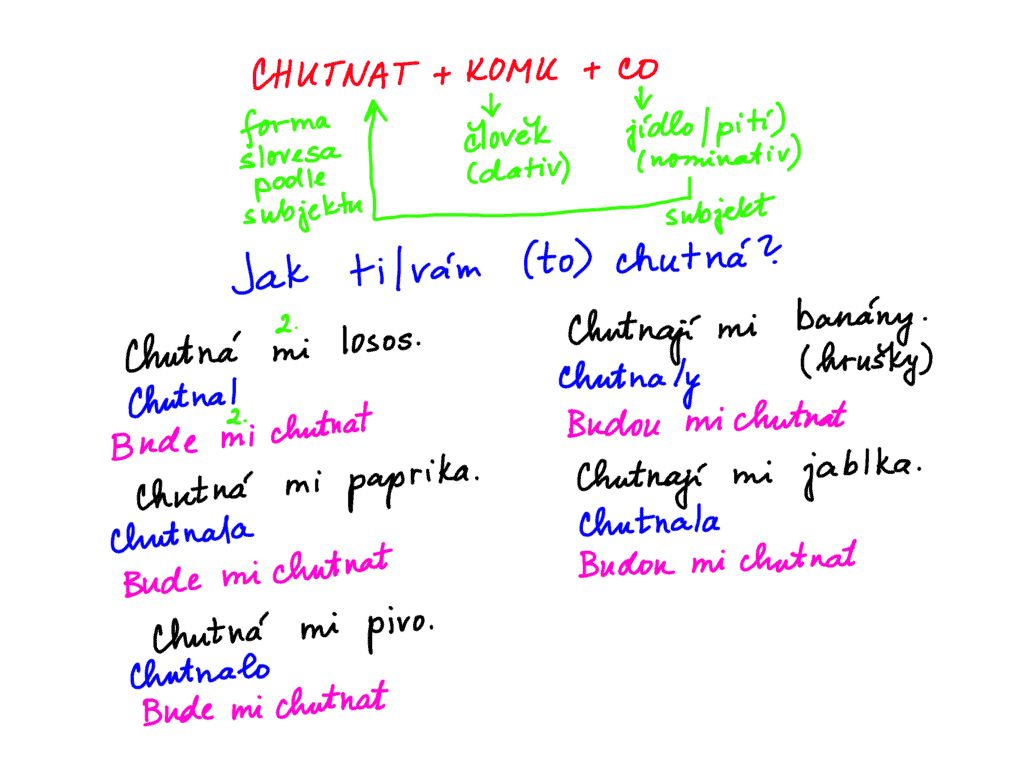 CHUTNAT + KOMU + CO
forma
slovesa
podle
subjektu
člověk
(dativ)
jídlo/pití)
(nominativ)
subjekt
Jak ti/vám (to) chutná?
2.
Chutná mi losos.
Chutnal
2.
Bude mi chutnat
Chutná mi paprika.
Chutnala
Bude mi chutnat
Chutná mi pivo.
Chutnalo
Bude mi chutnat
Chutnají mi banány.
(hrušky)
Chutnaly
Budou mi chutnat
Chutnají mi jablka.
Chutnala
Budou mi chutnat